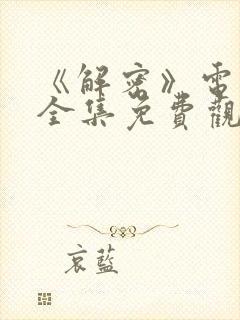 《解密》電
全集免費觀
哀藍